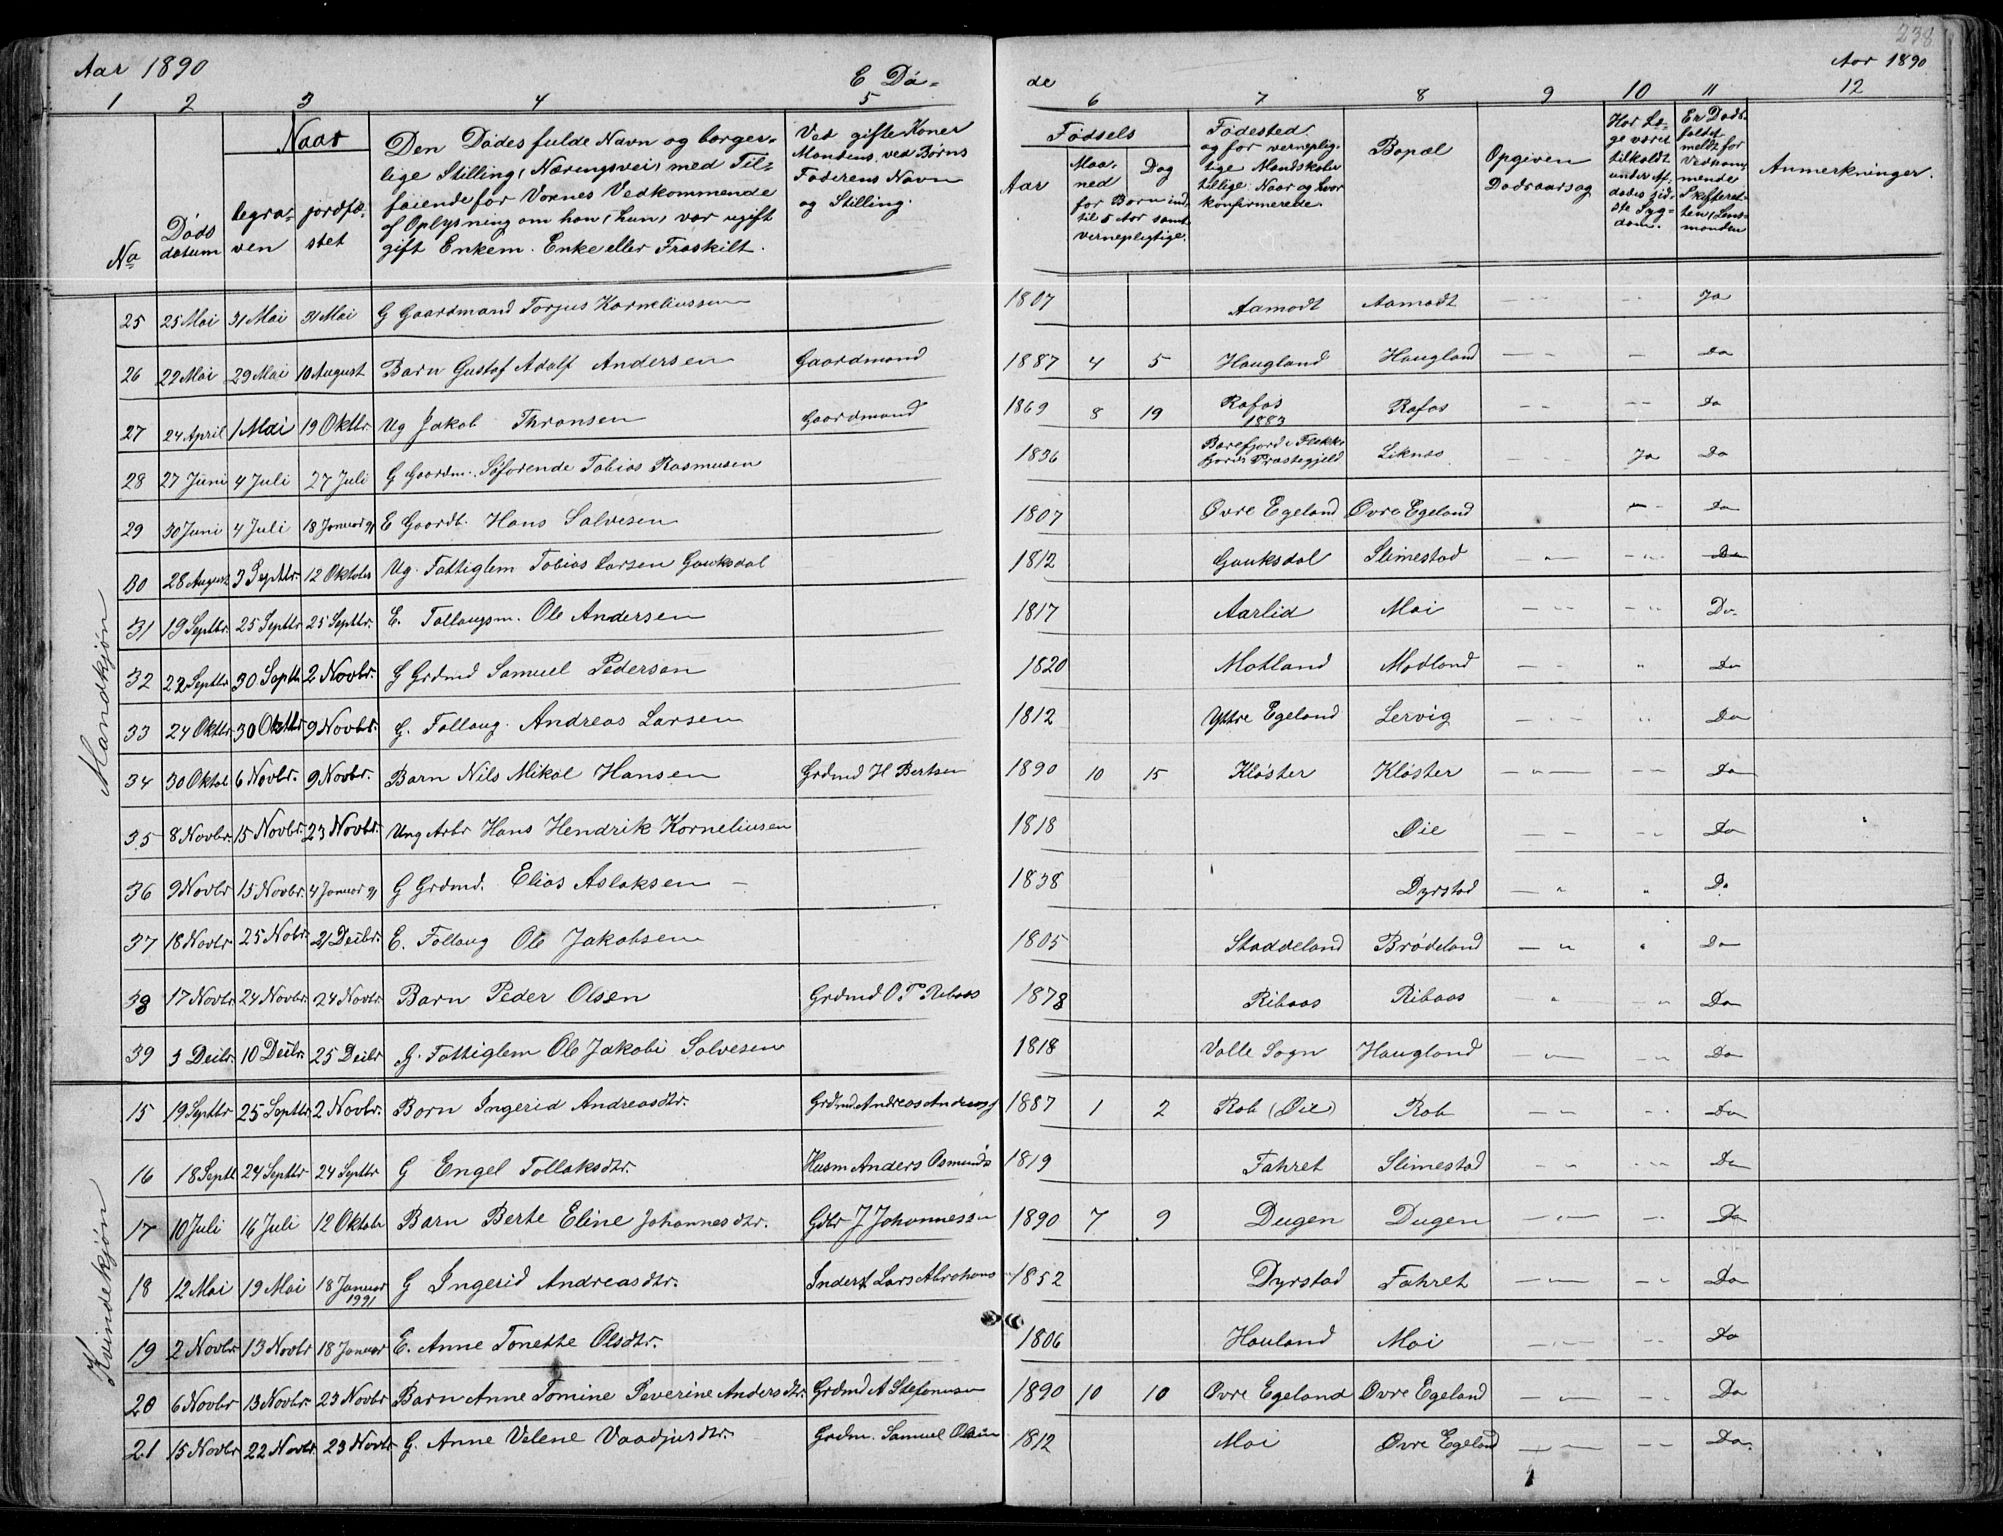 238
Aar 1890 E Dö- de Aar 1890
1 2 3 4 5 6 7 8 9 10 11 12
No
Döds datum
Naar
begra- ven
jordfæ- stet
Den Dödes fulde Navn og borger-
lige Stilling, Næringsvei, med Til-
föiende for Voxnes Vedkommende
af Oplysning om han, hun, var ugift
gift Enkem. Enke eller Fraskilt.
Ved gifte Koner
Mandens, ved Börns
Faderens Navn
og Stilling.
Födsels
Aar
Maa- ned
Dag
for Börn ind-
til 5 Aar samt
vernepligtige.
Födested
og for vernepligt-
tige Mandskaber
tillige: Naar og hvor
konfirmerede.
Bopæl
Opgiven
Dødsaarsag
Har Læ-
ge været
tilkaldt
under Af-
dødes sid-
ste Syg-
dom.
Er Døds-
faldet
meldt for
Vedkom-
mende
Skifteret-
ten, Lens-
manden
Anmerkninger.
Mandkjøn
25 25 Mai 31 Mai 31 Mai G Gaardmand Torjus Korneliussen 1807 Aamodt Aamodt Ja
26 22 Mai 29 Mai 10 August Barn Gustaf Adolf Andersen Gaardmand 1887 4 5 Haugland Haugland Do
27 24 April 1 Mai 19 Oktbr. Ug Jakob Thronsen Gaardmand 1869 8 19 Rafos 1883 Rafos Do
28 27 Juni 4 Juli 27 Juli G Gaardm. Söfarende Tobias Rasmusen 1836 Liknes Ja Do
29 30 Juni 4 Juli 18 Januar 91 E Gaardb. Hans Salvesen 1807 Øvre Egeland Øvre Egeland Do
30 28 August 3 Septbr. 12 Oktober Ug. Fattiglem Tobias Larsen Gauksdal 1812 Gauksdal Slimestad Do
31 19 Septbr. 25 Septbr 25 Septbr. E. Follaugsm. Ole Andersen 1817 Aarlid Moi Do.
32 22 Septbr 30 Septb. 2 Novbr. G Grdmd Samuel Pedersen 1820 Motland Modland Do
33 24 Oktbr. 30 Oktbr 9 Novbr. G. Follaug. Andreas Larsen 1812 Yttre Egeland Lervig Do
34 30 Oktob 6 Novbr. 9 Novbr. Barn Nils Mikal Hansen Grdmd H Bertsen 1890 10 15 Klöster Klöster Do
35 8 Novbr. 15 Novbr. 23 Novbr. Ung Arbr Hans Hendrik Korneliusen 1818 Øie Do
36 9 Novbr 15 Novbr. 4 Januar 91 G Grdmd. Elias Aslaksen 1838 Dyrstad Do
37 18 Novbr. 25 Nobr. 21 Decbr. E. Follaug Ole Jakobsen 1805 Staddeland Brödeland Do
38 17 Novbr. 24 Novbr. 24 Novbr Barn Peder Olsen Grdmd O T Ribaas 1878 Ribaas Ribaas Do
39 3 Decbr. 10 Decbr. 25 Decbr G. Fattiglem Ole Jakobi Salvesen 1818 Valle Sogn Haugland Do
Kvindekjøn
15 19 Septbr 25 Septbr. 2 Novbr. Barn Ingerid Andreasdtr. Grdmd Andreas 1887 1 2 Rob (Øie) Rob Do
16 18 Septb 24 Septbr 24 Septbr G Engel Tollaksdtr. Husm Anders Osmunds 1819 Fahret Slimestad Do
17 10 Juli 16 Juli 12 Oktobr Barn Berte Eline Johannesdtr. Gdbr J Johannessen 1890 7 9 Dugen Dugen Do
18 12 Mai 19 Mai 18 Januar 1991 G Ingerid Andreasdtr. Inderst Lars Abrahams 1852 Dyrstad Fahret Do
19 2 Novbr 13 Novbr 18 Januar E. Anne Tonette Olsdtr. 1806 Hauland Moi Do
20 6 Novbr 13 Novbr. 23 Novbr Barn Anne Tomine Severine Andersdtr. Grdmd A Stefansen 1890 10 10 Øvre Egeland Øvre Egeland Do
21 15 Novbr. 22 Novbr 23 Novbr G. Anne Velene Vaadjusdtr. Grdm. Samuel Olsen 1812 Moi Øvre Egeland Do.